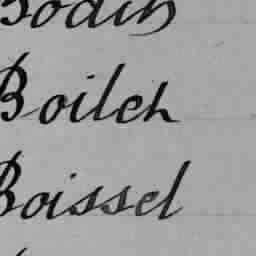 Bodin
Boilch
Boissel